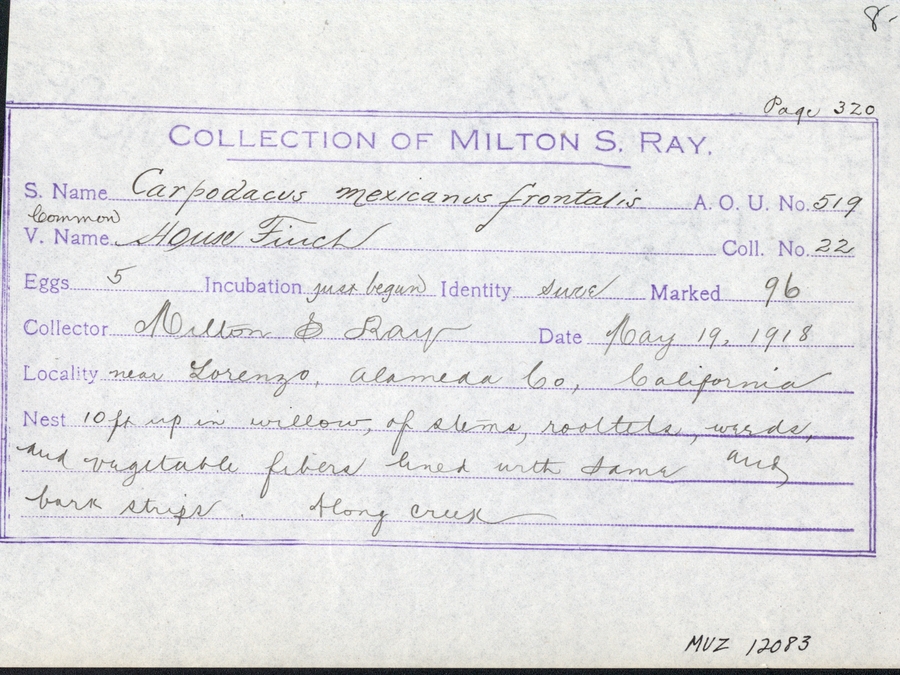 8-
Page 320
COLLECTION OF MILTON S. RAY.
S. Name Carpodacus mexicanus frontalis A. O. U. No. 519
Common
V. Name House Finch Coll. No. 22
Eggs 5 Incubation just begun Identity sure Marked 96
Collector Milton S Ray Date May 19, 1918
Locality near Lorenzo, Alameda Co, California
Nest 10 ft up in willow, of stems, rootlets, weeds,
and vegetable fibers lined with same and
bark strips. Along creek
MUZ 12083